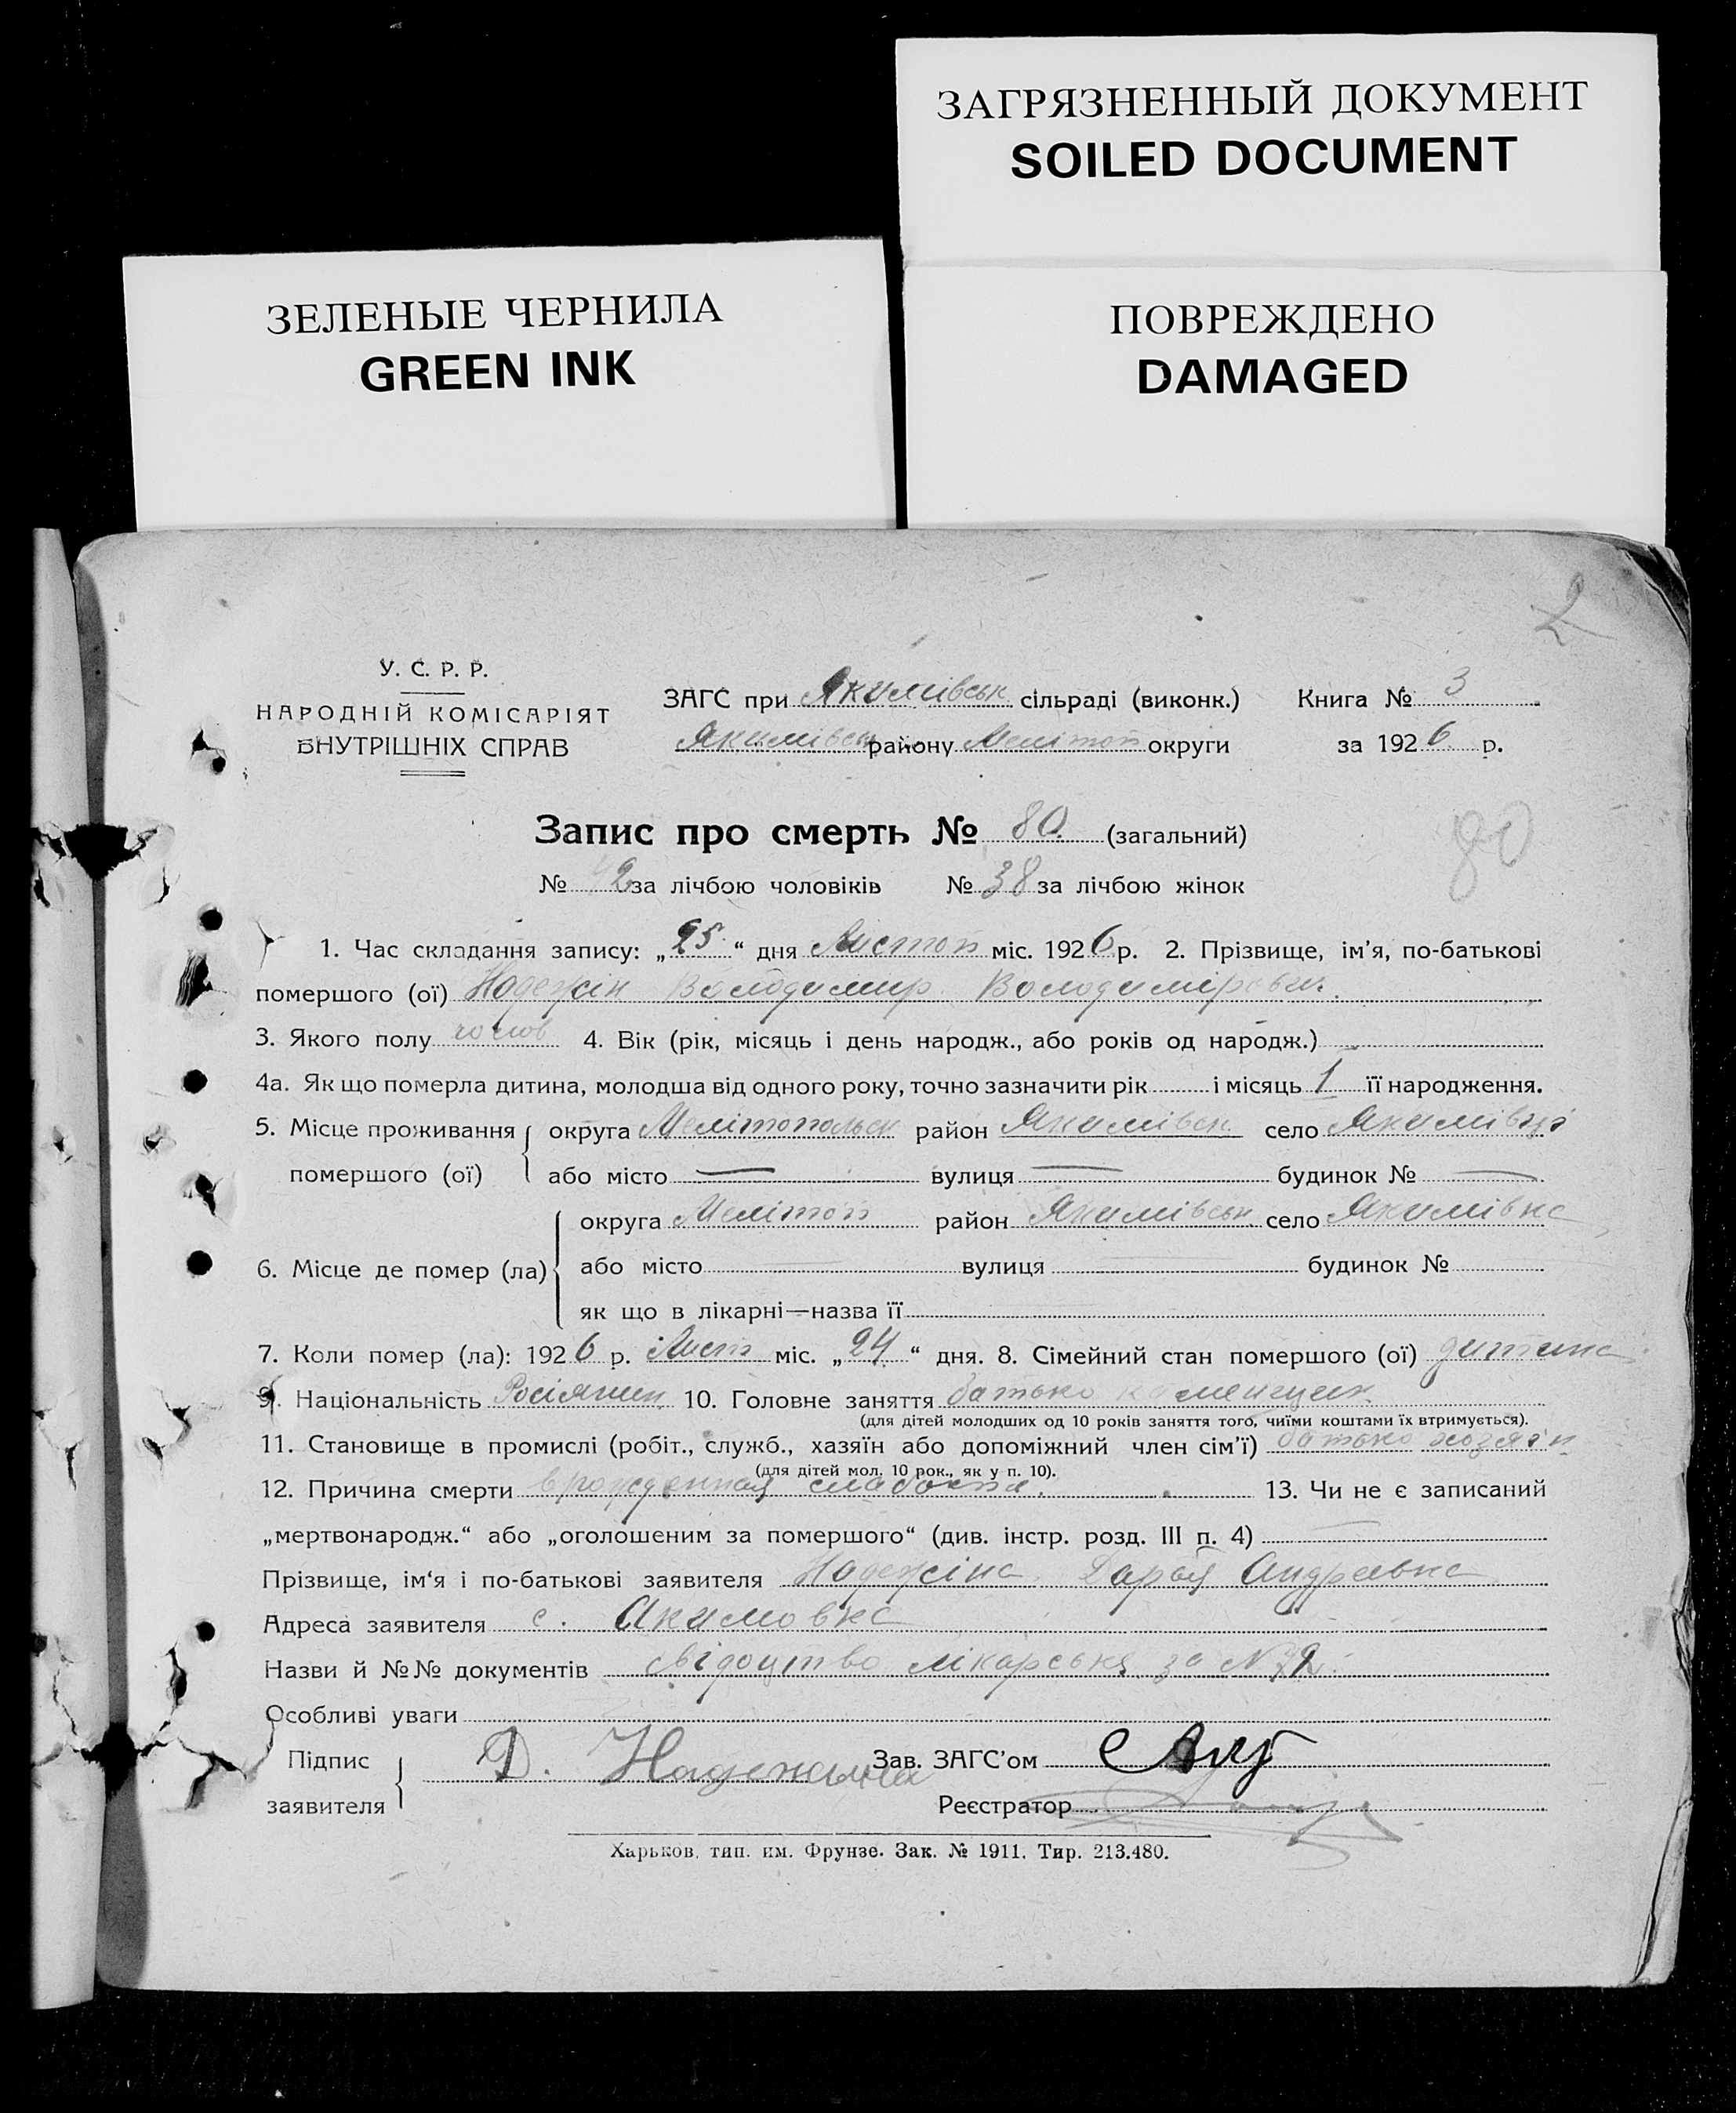 ЗАГРЯЗНЕННЫЙ ДОКУМЕНТ
SOILED DOCUMENT
ЗЕЛЕНЫЕ ЧЕРНИЛА
GREEN INK
ПОВРЕЖДЕНО
DAMAGED
2
У. С. Р. Р.
НАРОДНІЙ КОМІСАРІЯТ
ВНУТРІШНІХ СПРАВ
ЗАГС при Якимівськ сільраді (виконк.) Книга № 3
Якимівськ району Мелітоп округи за 1926 р.
Запис про смерть № 80 (загальний)
80
№ 42 за лічбою чоловіків № 38 за лічбою жінок
1. Час складання запису: „25“ дня Листоп міс. 1926 р. 2. Прізвище, ім'я, по-батькові
помершого (ої) Надежін Володимир Володимірович.
3. Якого полу чолов 4. Вік (рік, місяць і день народж., або років од народж.) —
4а. Як що померла дитина, молодша від одного року, точно зазначити рік і місяць 1 її народження.
5. Місце проживання помершого (ої) округа Мелітопольськ район Якимівськ село Якимівці
або місто — вулиця — будинок № —
6. Місце де помер (ла) округа Мелітоп район Якимівськ село Якимівка
або місто — вулиця — будинок №
як що в лікарні—назва її
7. Коли помер (ла): 1926 р. Лист міс. „24“ дня. 8. Сімейний стан помершого (ої) дитина
9. Національність Росіянин 10. Головне заняття батько каменщик
(для дітей молодших од 10 років заняття того, чиїми коштами їх втримується).
11. Становище в промислі (робіт., служб., хазяїн або допоміжний член сім'ї) батько хозяїн
(для дітей мол. 10 рок., як у п. 10).
12. Причина смерти врожденная слабость. 13. Чи не є записаний
„мертвонародж.“ або „оголошеним за помершого“ (див. інстр. розд. III п. 4) —
Прізвище, ім'я і по-батькові заявителя Надежіна Дарья Андревна
Адреса заявителя с. Акимовка
Назви й №№ документів свідоцтво лікарське за N 72.
Особливі уваги
Підпис заявителя Д. Надежина Зав. ЗАГС'ом
Реєстратор
Харьков, тип. им. Фрунзе. Зак. № 1911. Тир. 213.480.